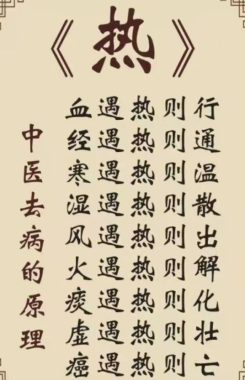 《热》
中医去病的原理
血遇热则行
经遇热则通
寒遇热则温
湿遇热则散
风遇热则出
火遇热则解
痰遇热则化
虚遇热则壮
癌遇热则亡